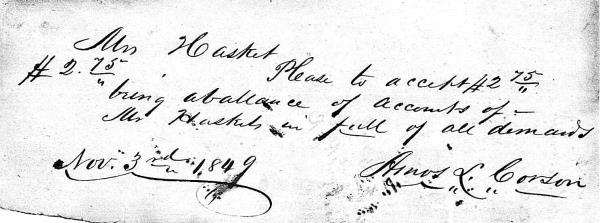 Mr Hasket
$2.75 Please to accept $2 75
being a ballance of accounts of
Mr Haskets in full of all demands
Nov. 3rd 1849
Amos L. Corson